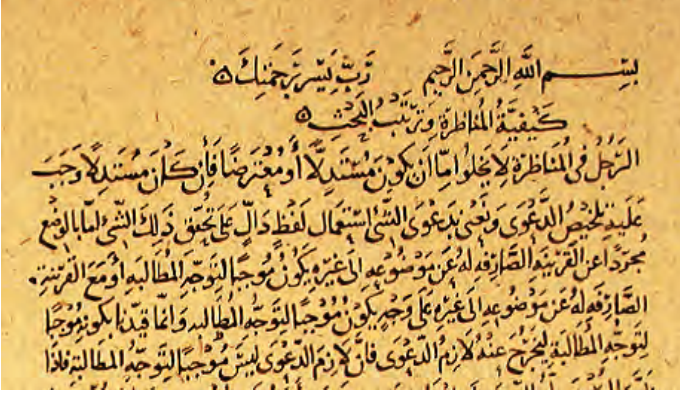 بسم الله الرحمن الرحيم ربّ يسّر برحمتك
كيفيّة المناظرة وترتيب البحث
الرجل في المناظرة لا يخلوا امّا ان يكون مستدلًّا أو معترضًا فإن كان مستدلًا وجب
عليه تلخيص الدعوى ونعني بدعوى الشئ استعمال لفظ دالّ على تحقق ذلك الشئ امّا بالوضع
مجردًا عن القرينه الصارفه له عن موضوعه الى غيره يكون موجبا لتوجه المطالبه أو مع القرينة
الصارفه له عن موضوعه الى غيره على وجه يكون موجبًا لتوجه المطالبه وانما قيدنا بكونه موجبًا
لتوجه المطالبة ليخرج عنه لازم الدعوى فانّ لازم الدعوى ليس موجبًا لتوجه المطالبة فاذا